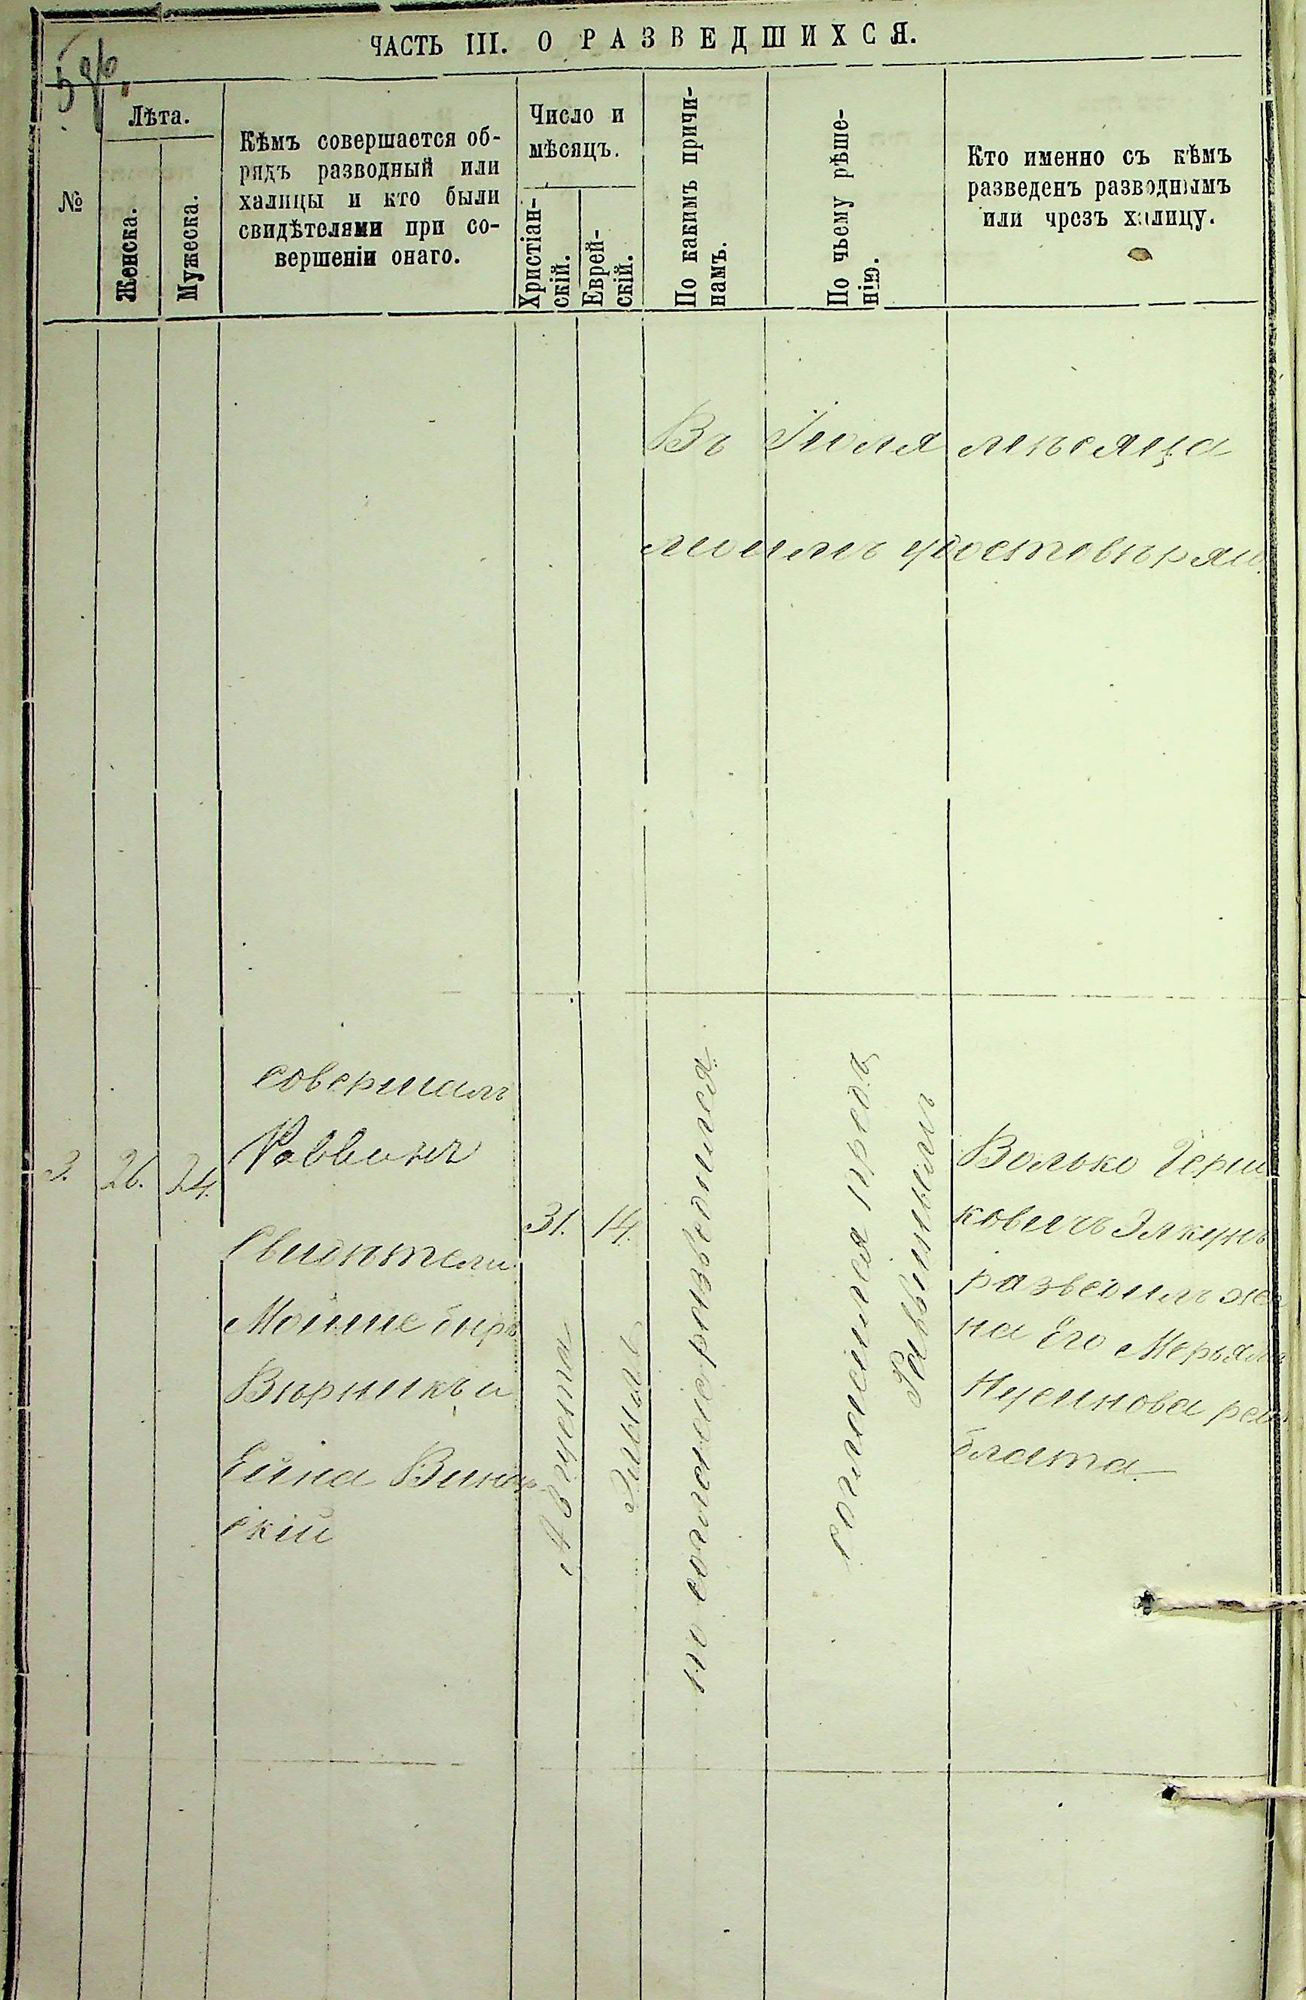 ЧАСТЬ III. О РАЗВЕДШИХСЯ.
№
Лѣта.
Женска.
Мужеска.
Кѣмъ совершается об-
рядъ разводный или
халицы и кто были
свидѣтелями при со-
вершеніи онаго.
Число и
мѣсяцъ.
Христіан-
скій.
Еврей-
скій.
По какимъ причи-
намъ.
По чьему рѣше-
нію.
Кто именно съ кѣмъ
разведенъ разводнымъ
или чрезъ халицу.
Въ Іюля мѣсяца
3.
26.
24.
совершалъ
Раввинъ
Свидѣтели
Мойше
Вѣрникъ и
скій
31.
Августа
14.
Элыль
по согласію разводился
согласился предъ
Равинымъ
Волько Герш
ковичъ Элкунъ
разведилъ же
на Его Мерьям
Нусинова
блата